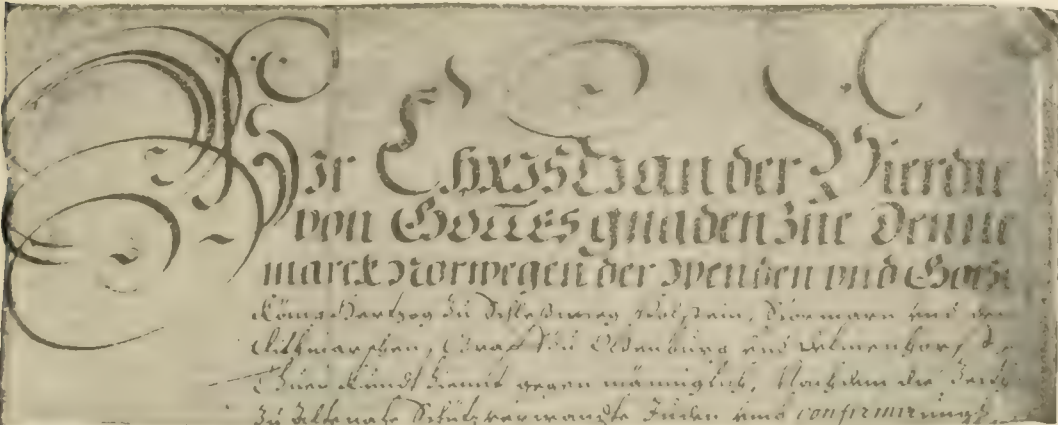 Wir Christian der Vierdte
von Gottes gnaden zue Denne
marck Norwegen der Wenden und Goth
König Hertzog zu Schleßwieg Holstein, Stormarn und der
Dithmarschen, Graff zu Oldenburg und Delmenhorst
Thuen kundt hiemit gegen männiglich, Nachdem die
zu Altenahe Schützverwandte Juden umb confirmirung